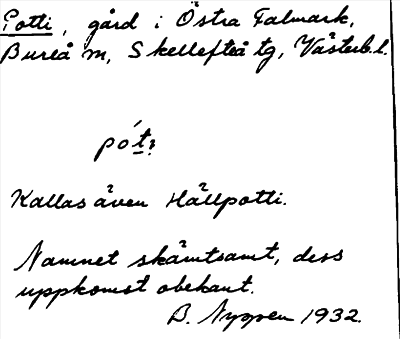 Potti, gård i Östra Falmark,
Bureå sn, Skellefteå tg, Västerb. l.
pót:
Kallas även Hällpotti.
Namnet skämtsamt, dess
uppkomst obekant.
B. Nygren 1932.